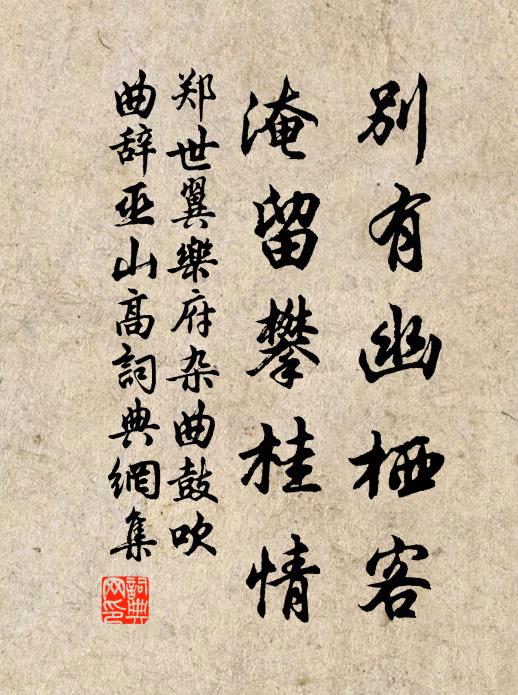 别有幽栖客
淹留攀桂情
郑世翼樂府杂曲鼓吹
曲辞巫山高詞典網集
詞典
网印